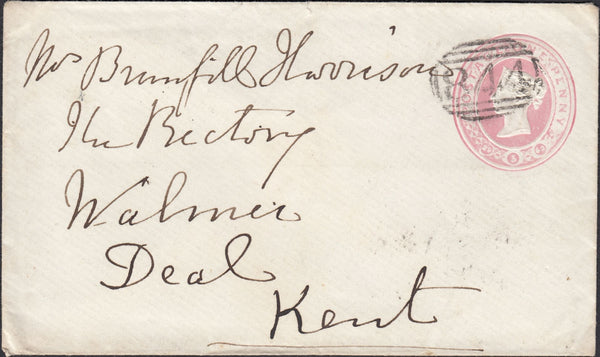 Mrs Brumfill Harrison
The Rectory
Walmer
Deal
Kent